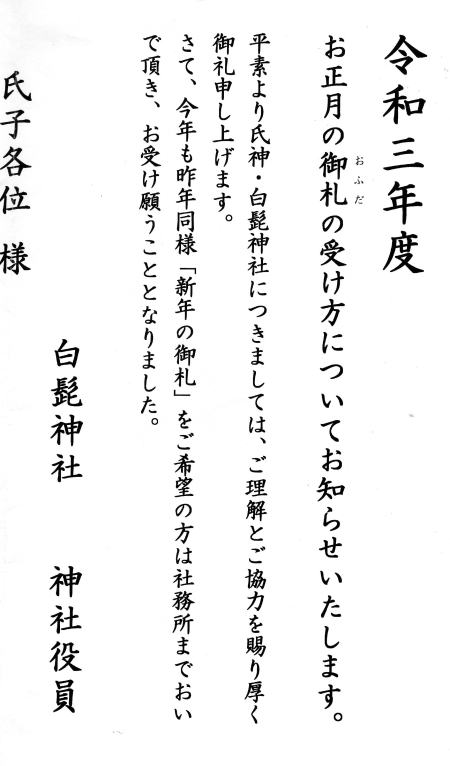 令和三年度
お正月の御札の受け方についてお知らせいたします。
おふだ
平素より氏神・白髭神社につきましては、ご理解とご協力を賜り厚く
御礼申し上げます。
さて、今年も昨年同様「新年の御札」をご希望の方は社務所までおい
で頂き、お受け願うこととなりました。
白髭神社　神社役員
氏子各位　様